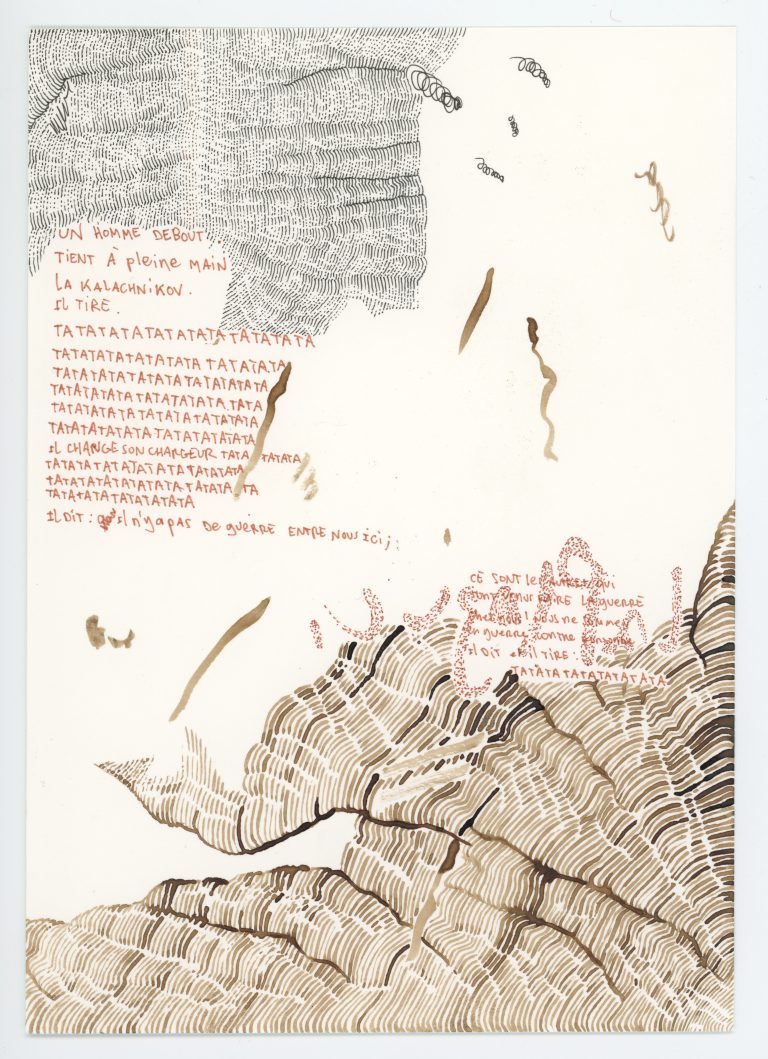 UN HOMME DEBOUT.
TIENT À pleine MAIN
LA KALACHNIKOV.
IL TIRE.
TATATATATATATATATA TATATATA
TATATATATATATATA TATATATA
TATATATATATATATATATATA
TATATATATATATATATA TATA
TATATATATATATATATATATA
TATATATATATATATATATATA
IL CHANGE SON CHARGEUR TATA TATATA
TATATATATATATATATATATA
TATATATATATATATATATA TA
TATATATATATATATA
IL DIT : Il n'y a pas DE guERRE ENTRE NOUS ICI ;
CE SONT LES QUI
SONT VENUS FAIRE LA GUERRE
chez nous ! Nous ne somme
en guerre contre personne
Il DIT et il TIRE :
TATATATATATATATATA